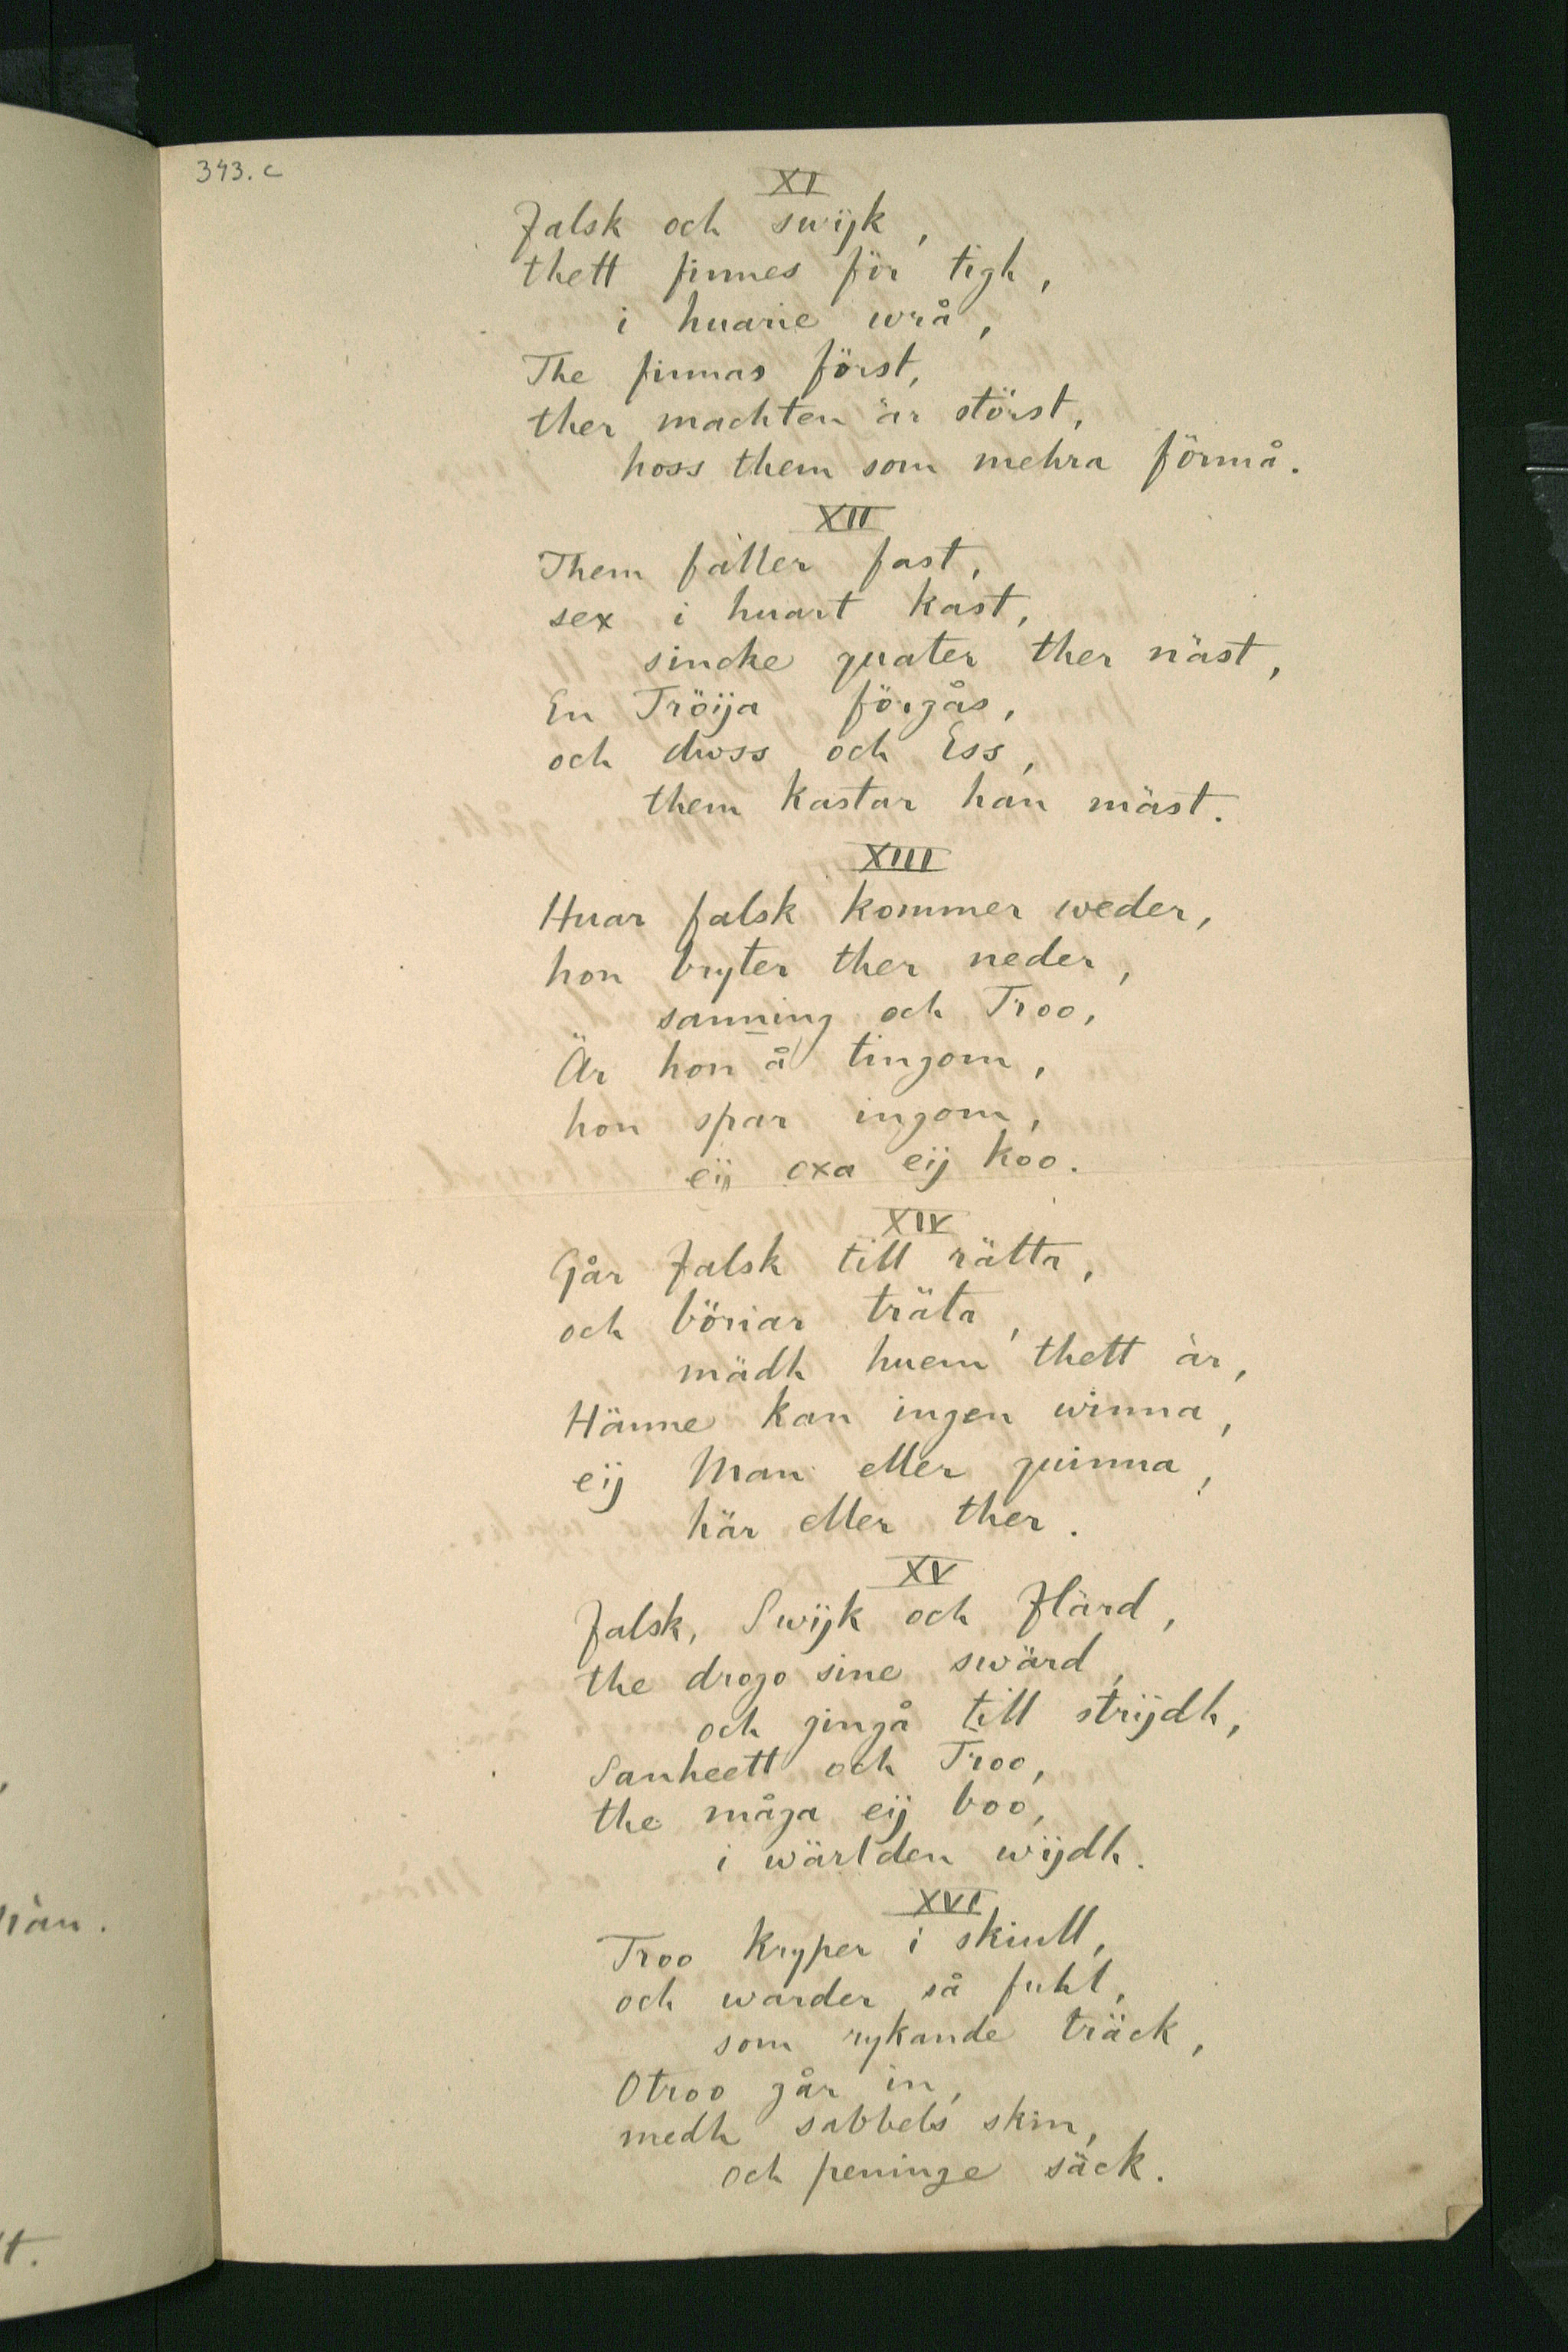 343. c
XI
Falsk och swijk,
thett finnes för tigh,
i huarie wrå,
The finnas först,
ther machten är störst,
hoss them som mehra förmå.
XII
Them fäller fast,
sex i huart kast,
sincke quater ther näst,
En Tröija förgås,
och duss och Ess,
them kastar han mäst.
XIII
Huar falsk kommer weder,
hon bryter ther neder,
sanning och Troo,
Är hon å tingom,
hon spar ingom,
eij oxa eij koo.
XIV
Går Falsk till rätta,
och böriar träta,
mädh huem thett är,
Hänne kan ingen winna,
eij Man eller quinna,
här eller ther.
XV
Falsk, Swijk och Flärd,
the drogo sine swärd,
och gingå till strijdh,
Sanheett och Troo,
the måga eij boo,
i wärlden wijdh.
XVI
Troo kryper i skiull,
och warder så fuhl,
som rykande träck,
Otroo går in,
medh sabbels skin,
och peninge säck.